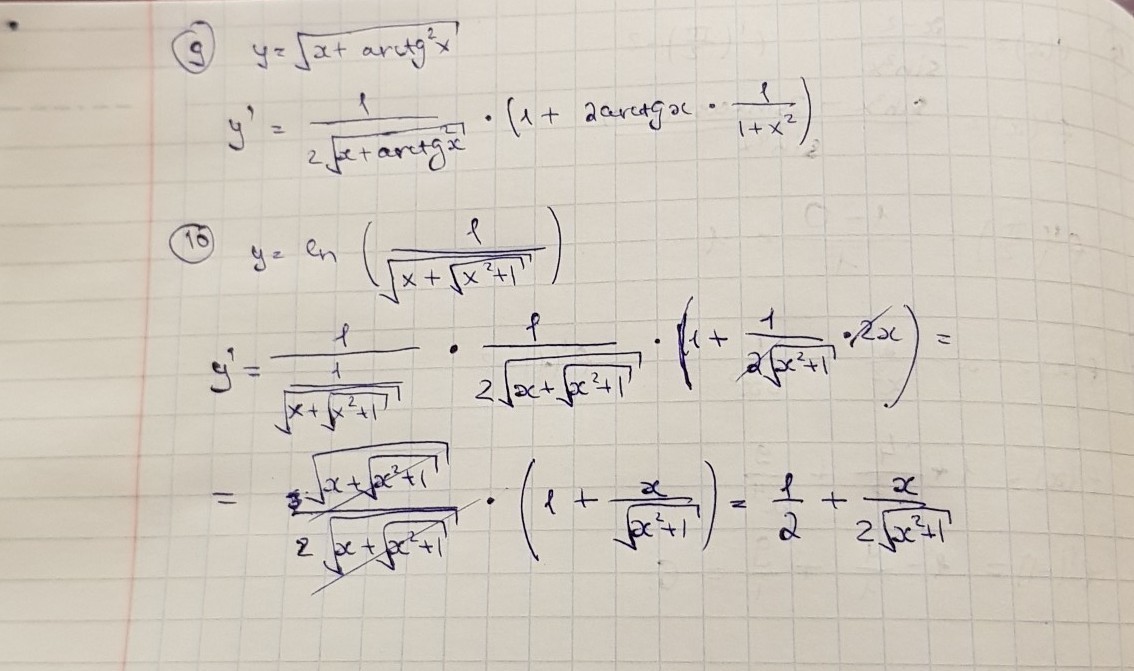 ⑨ y = √(x + arctg²x)
y' = 1/(2√(x + arctg²x)) · (1 + 2arctgx · 1/(1+x²))
⑩ y = ln (1/√(x + √(x²+1)))
y' = 1/(1/√(x + √(x²+1))) · 1/(2√(x + √(x²+1))) · (1 + 1/(2√(x²+1)) · 2x) =
= √(x + √(x²+1))/(2√(x + √(x²+1))) · (1 + x/√(x²+1)) = 1/2 + x/(2√(x²+1))